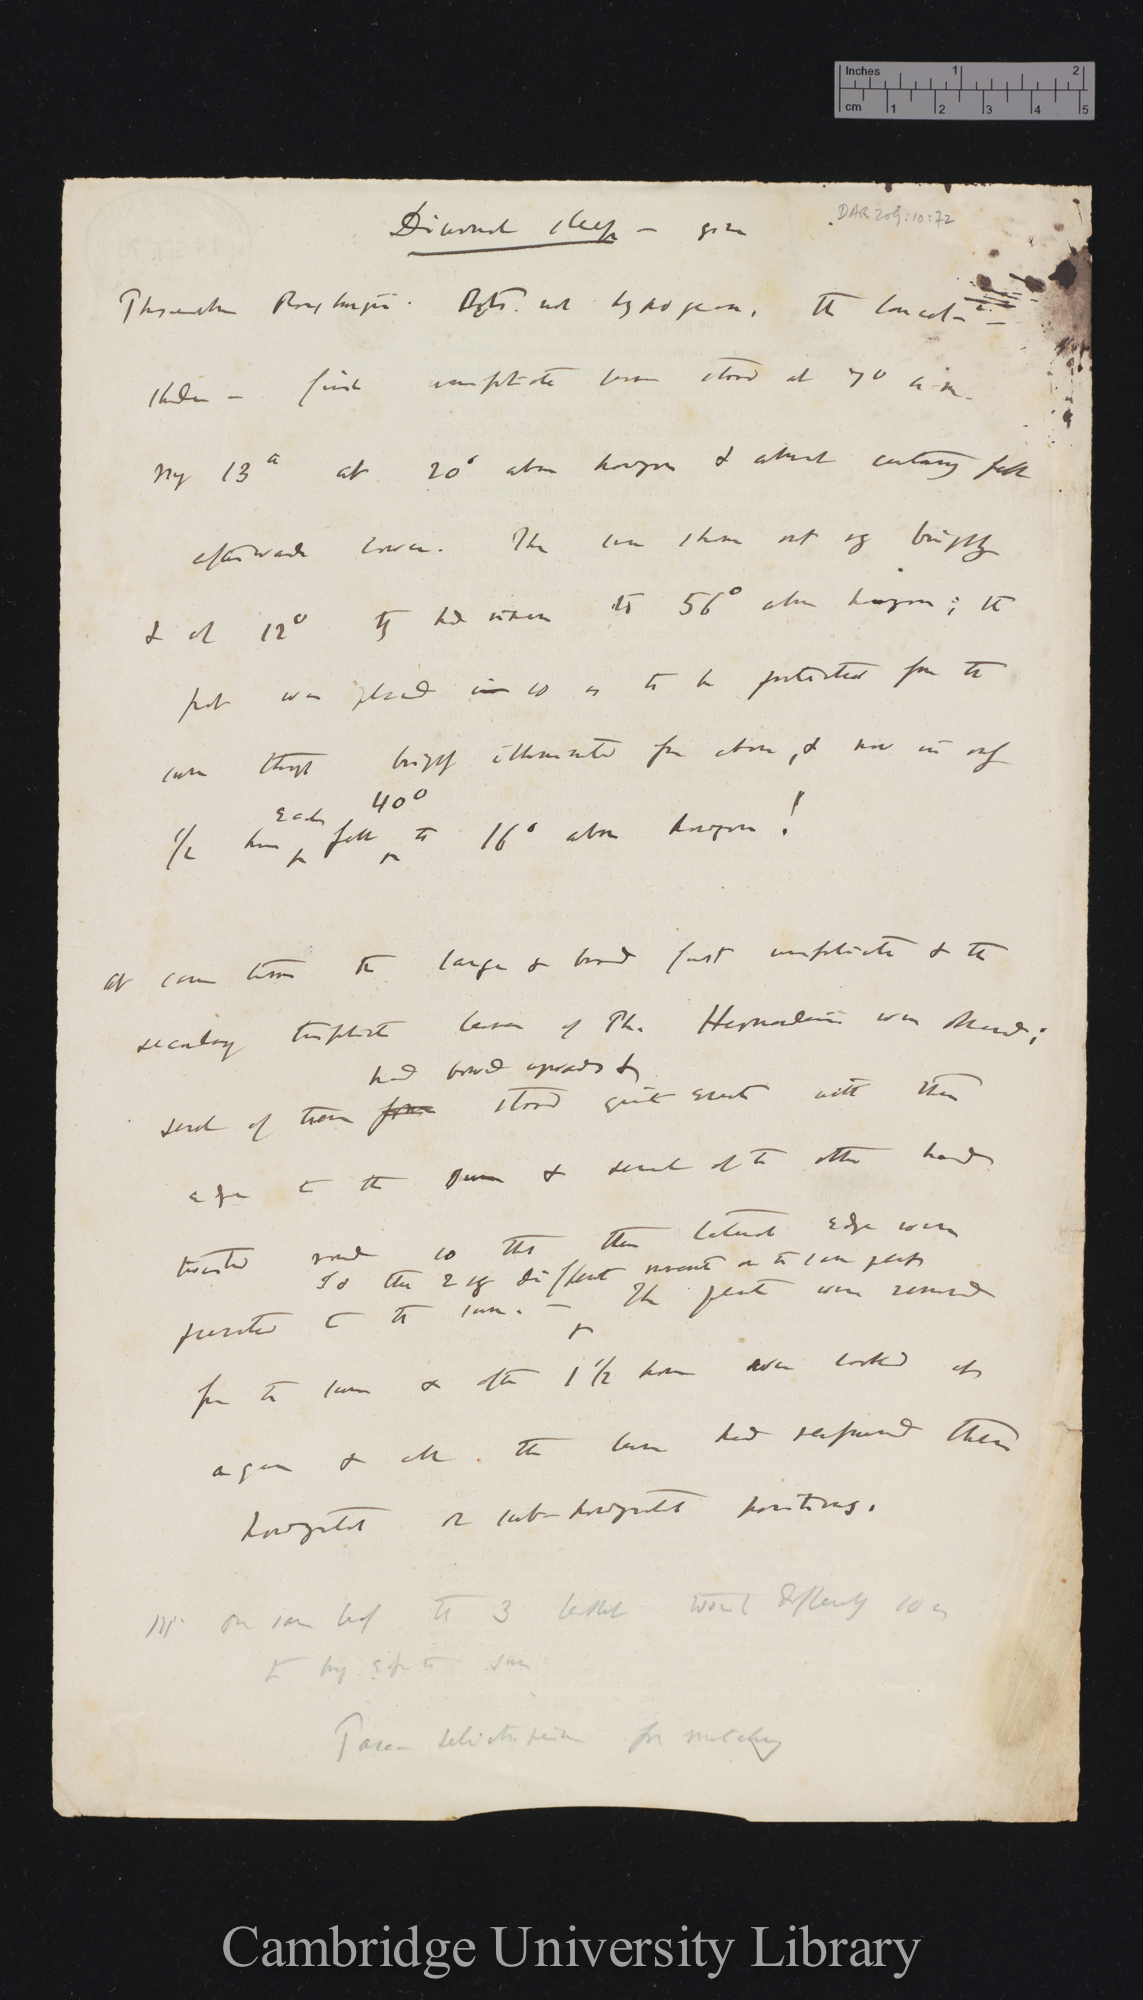 Inches 1 2
cm 1 2 3 4 5
DAR 209:10:72
Diurnal sleep —
Phaseolus Roxburghii. not hypogean, the
first unifoliate leaves stood at 7° a.m.
May 13th at 20° above horizon & almost certainly fell
afterwards lower. The sun shone out very brightly
& at 12° they had risen to 56° above horizon; the
pot was placed so as to be protected from the
sun though brightly illuminated from above, & now in only
Each 40°
1/2 hour fell to 16° above horizon!
at same time the large & broad first unifoliate & the
secondary trifoliate leaves of Ph. Hernandesii were observed;
had bowed upwards &
several of them stood quite erect with their
edge to the sun & several of the other had
twisted round so that their lateral edge were
So that 2 very different movements on the same plants
presented to the sun. — The plants were removed
from the sun & after 1 1/2 hour were looked at
again & all the leaves had reassumed their
horizontal or sub-horizontal positions.
on same leaf the 3 leaflets moved differently so as
to bring edge to sun
Cambridge University Library